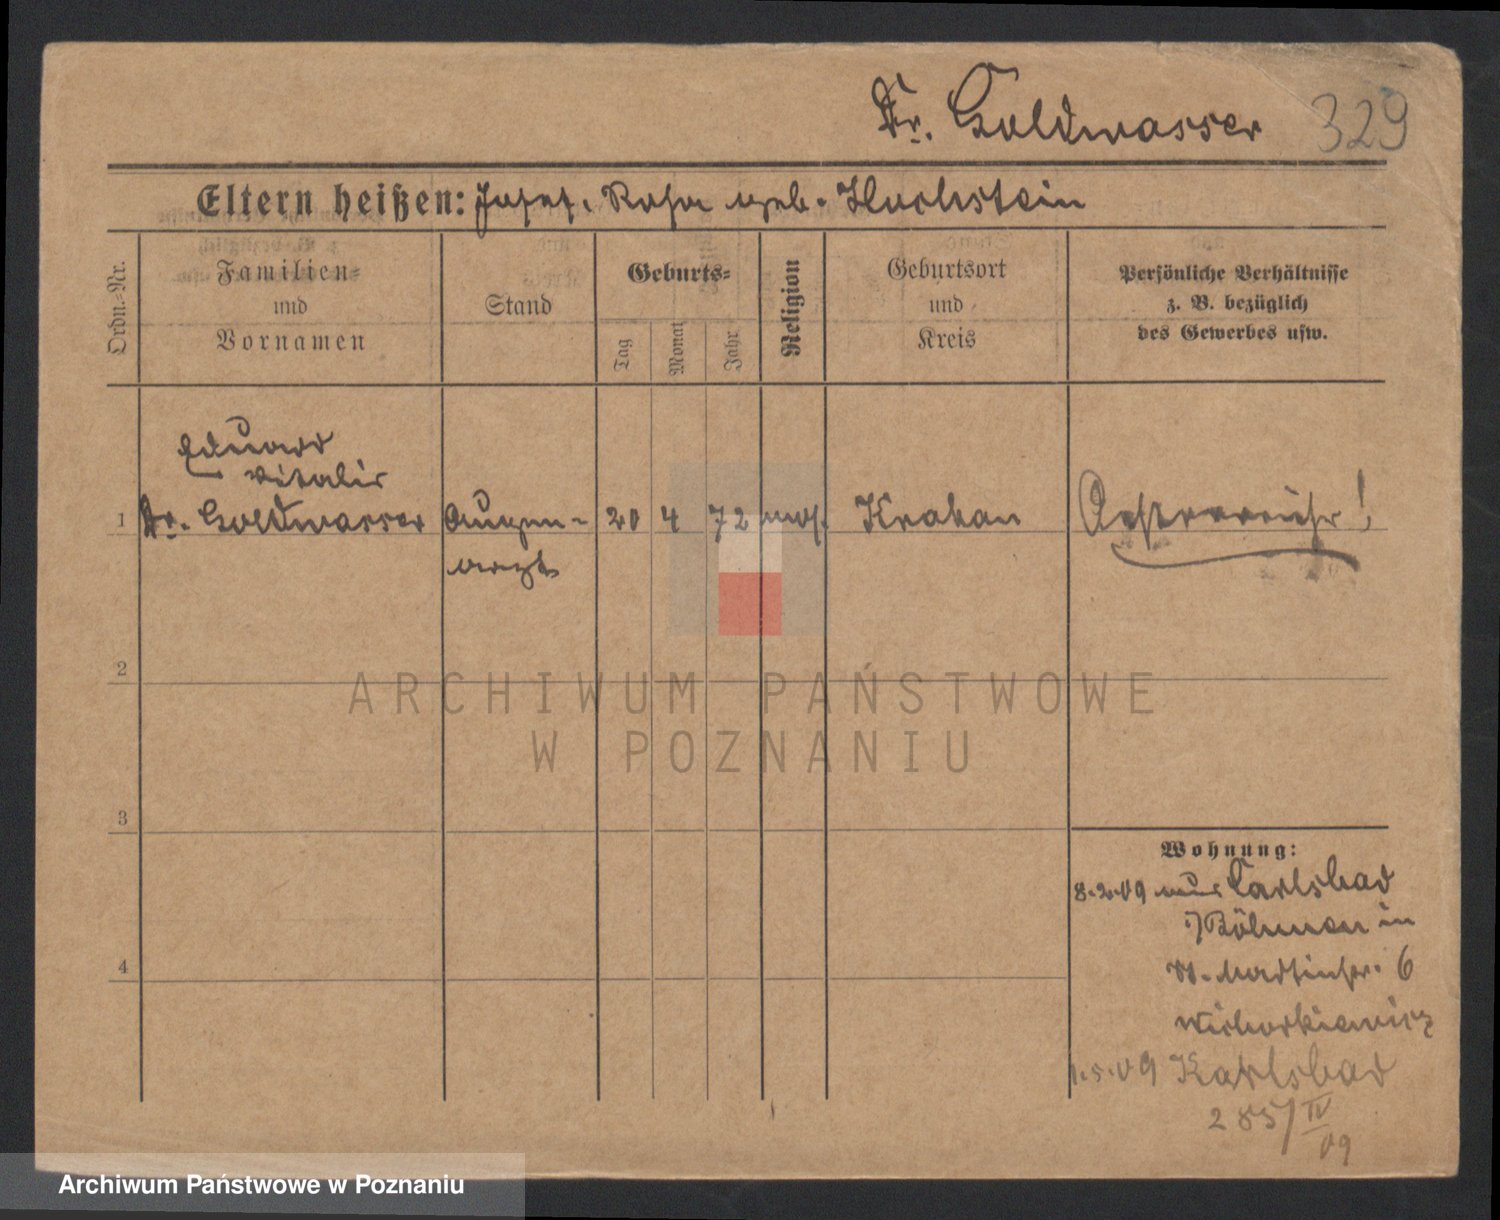 Dr. Goldwasser 329
Eltern heißen: Josef. Rosa geb. Huchstein
Ordn.=Nr.
Familien=
und
Vornamen
Stand
Geburts=
Tag
Monat
Jahr
Religion
Geburtsort
und
Kreis
Persönliche Verhältnisse
z. B. bezüglich
des Gewerbes usw.
Eduard
Vitalis
1 Dr. Goldwasser Augen- 20 4 72 mos. Krakau Oesterreicher!
arzt
2
3
4
Wohnung:
8.2.09 aus Carlsbad
i/Böhmen in
St. Martinstr. 6
Wicherkiewicz
1.5.09 Karlsbad
285/IV
09
ARCHIWUM PAŃSTWOWE
W POZNANIU
Archiwum Państwowe w Poznaniu